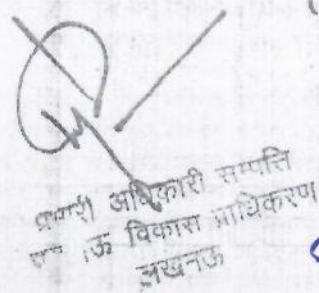 प्रभारी अधिकारी सम्पत्ति
विकास प्राधिकरण
लखनऊ